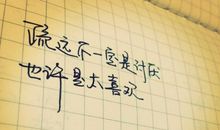 疏远不一定是讨厌
也许是太喜欢